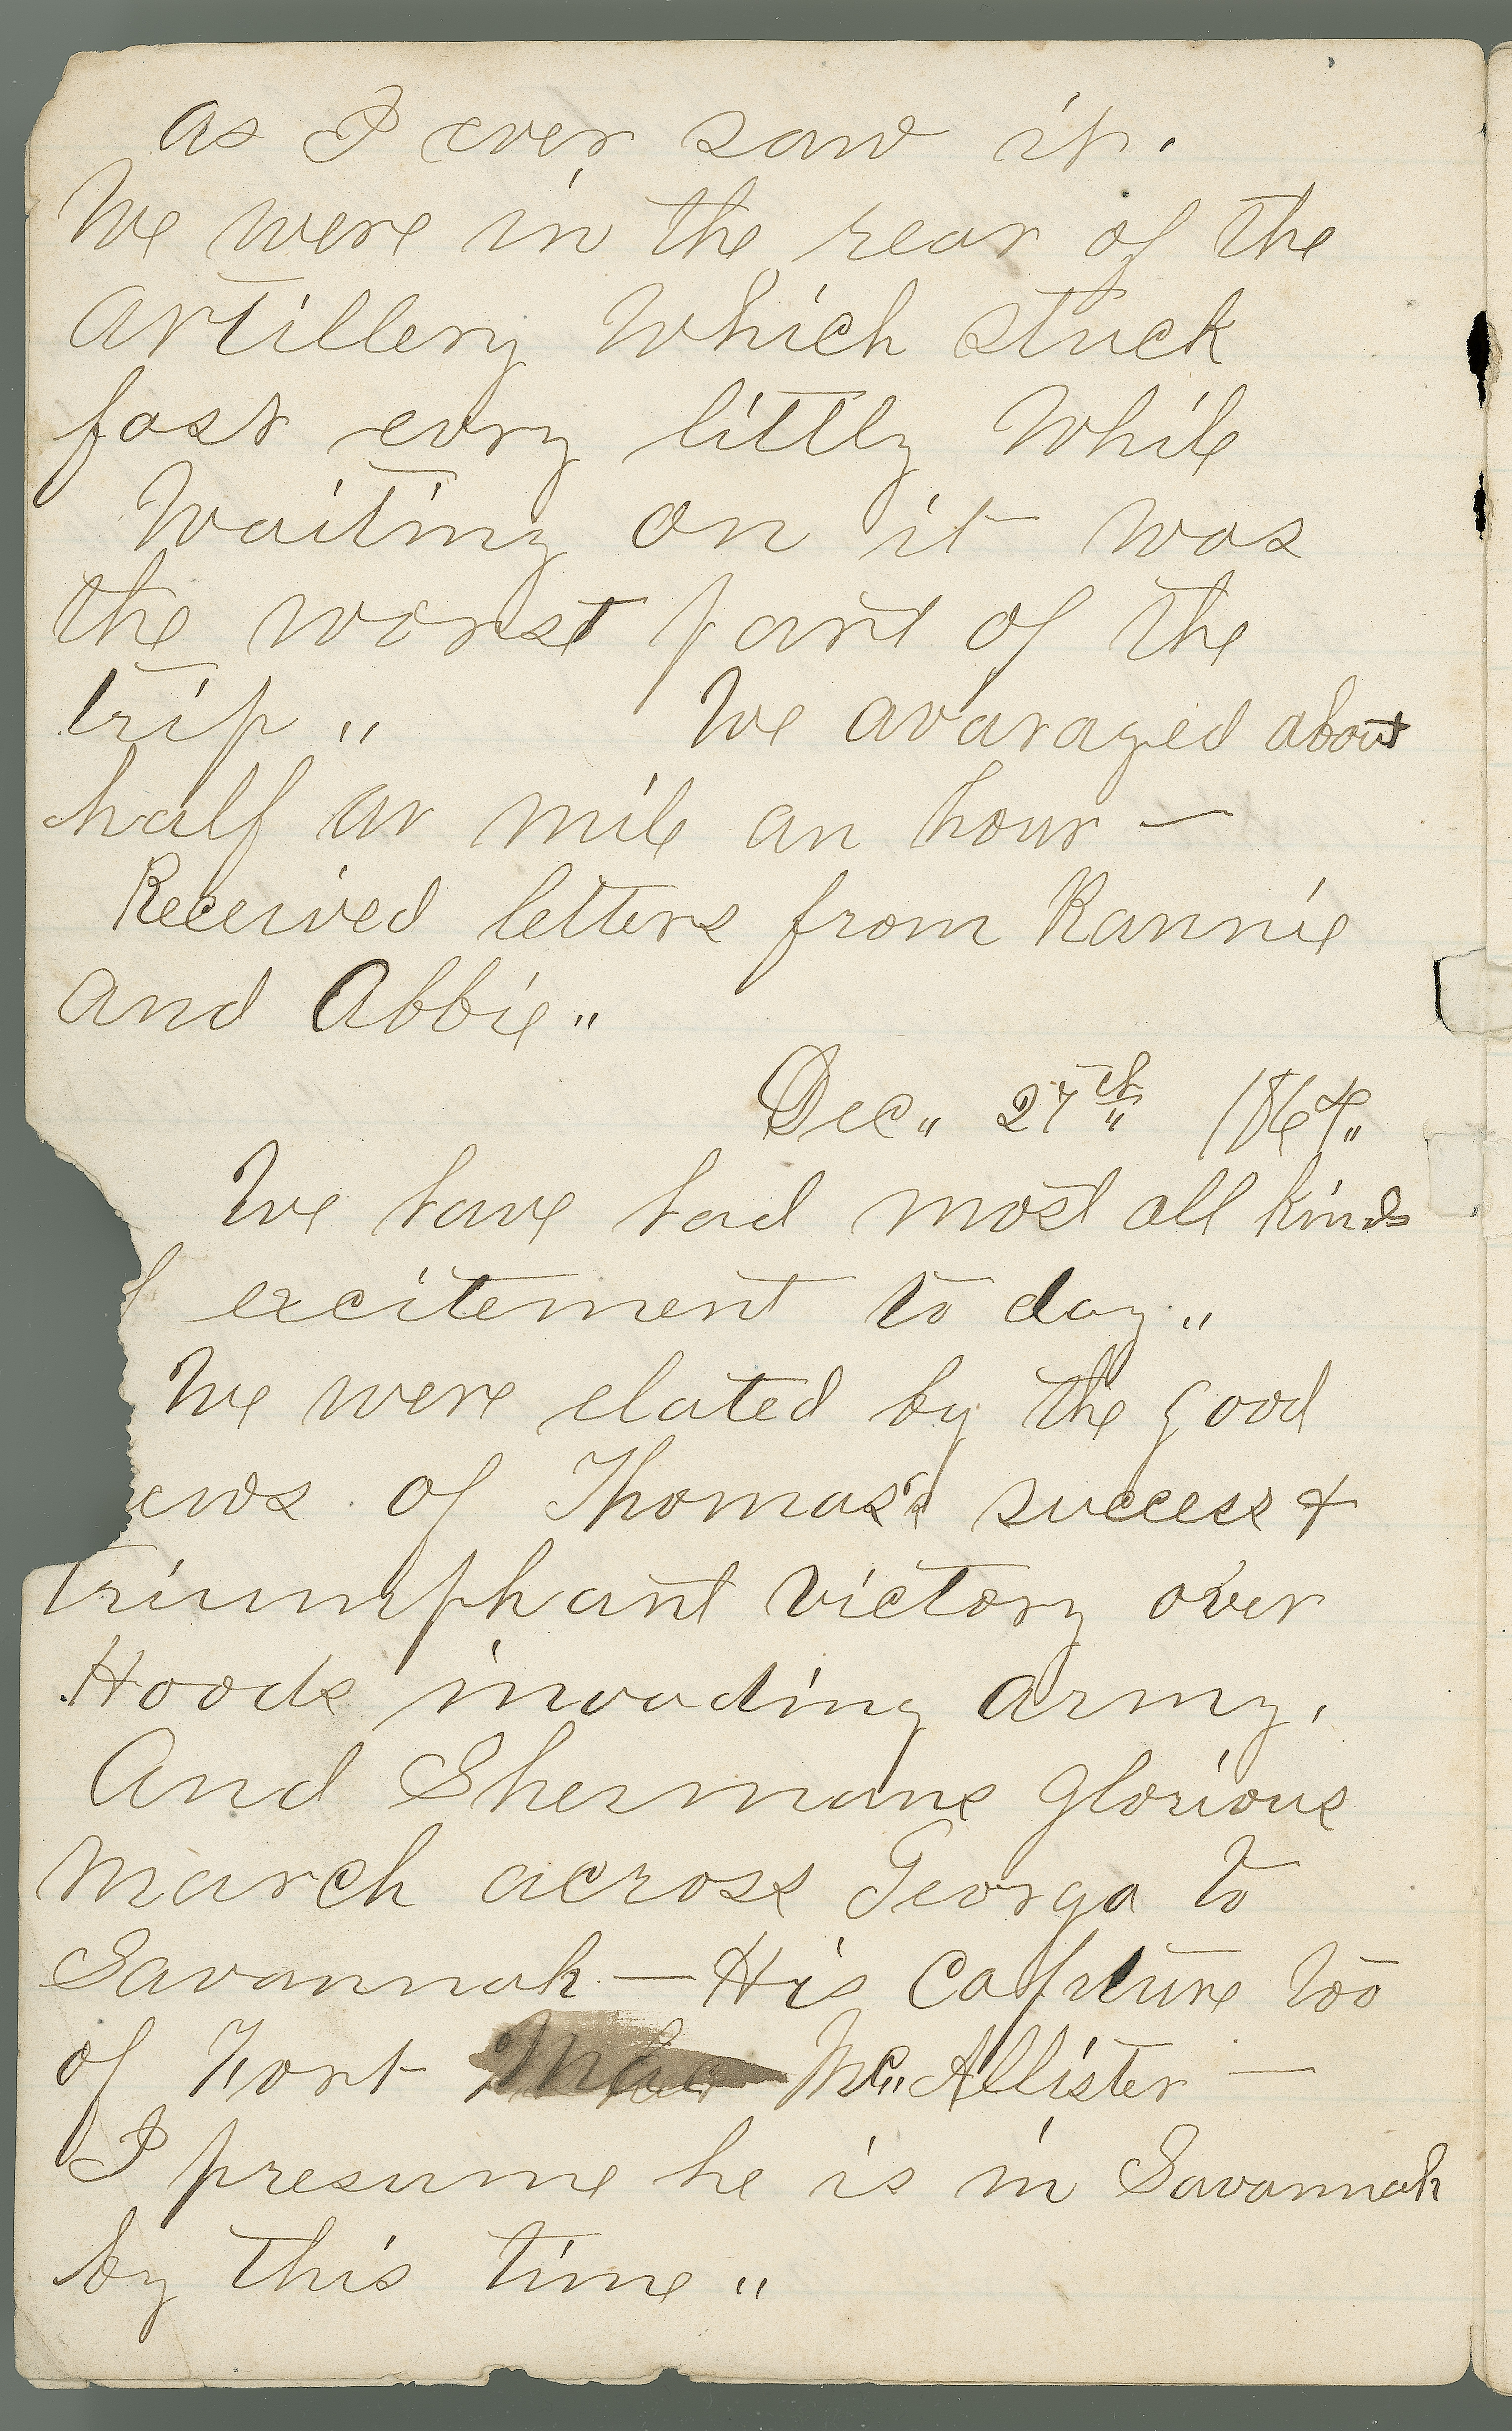 as I ever saw it.
We were in the rear of the
artillery Which stuck
fast evry littly While
Waiting on it was
the worst part of the
trip "          We avaraged about
half ar mile an hour —
Received letters from Rannie
and Abbie "
Dec " 27th " 1864 "
We have had most all kinds
f excitement to day "
We were elated by the good
ews of Thomas's success &
triumphant victory over
Hoods invading army,
And Shermans glorious
march across Georga to
Savannah — His Capture too
of Fort Mc " Allister —
I presume he is in Savannah
by this time "